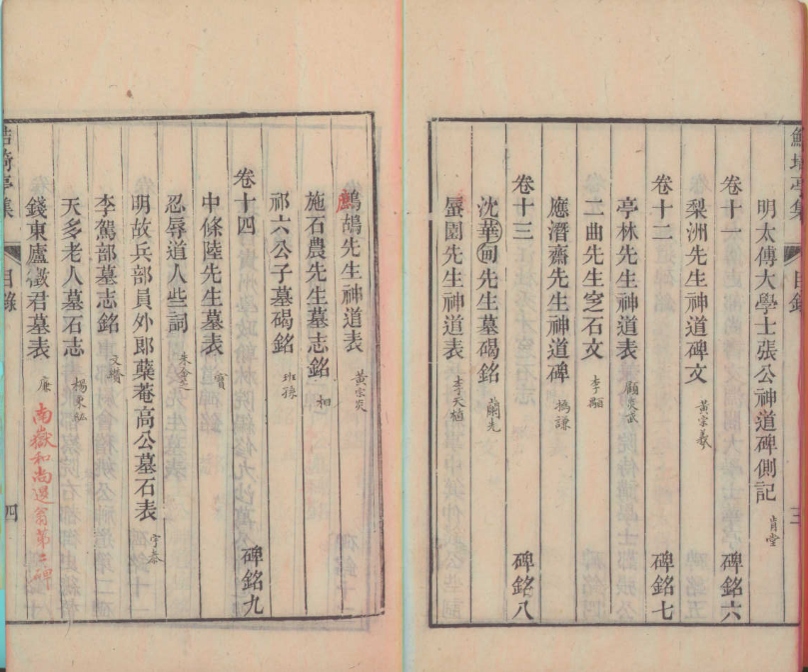 鮚埼亭集 目錄 三
明太傅大學士張公神道碑側記 肯堂
卷十一 碑銘六
梨洲先生神道碑文 黃宗羲
卷十二 碑銘七
亭林先生神道表 顧炎武
二曲先生窆石文 李顒
應潛齋先生神道碑 撝謙
卷十三 碑銘八
沈華甸先生墓碣銘 蘭先
蜃園先生神道表 李天植
鷓鴣先生神道表 黃宗炎
施石農先生墓志銘 相
祁六公子墓碣銘 班孫
卷十四 碑銘九
中條陸先生墓表 寶
忍辱道人些詞 朱金芝
明故兵部員外郎蘗菴高公墓石表 宇泰
李駕部墓志銘 文纘
天多老人墓石志 楊秉紘
錢東廬徵君墓表 廉 南嶽和尚退翁第二碑
鮚埼亭集 目錄 四